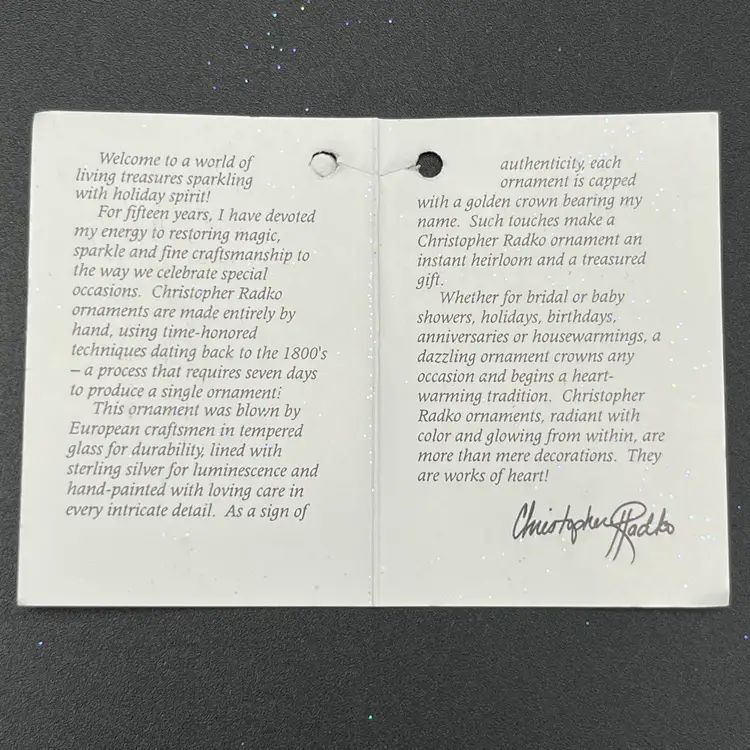 Welcome to a world of
living treasures sparkling
with holiday spirit!
For fifteen years, I have devoted
my energy to restoring magic,
sparkle and fine craftsmanship to
the way we celebrate special
occasions. Christopher Radko
ornaments are made entirely by
hand, using time-honored
techniques dating back to the 1800's
– a process that requires seven days
to produce a single ornament!
This ornament was blown by
European craftsmen in tempered
glass for durability, lined with
sterling silver for luminescence and
hand-painted with loving care in
every intricate detail. As a sign of
authenticity, each
ornament is capped
with a golden crown bearing my
name. Such touches make a
Christopher Radko ornament an
instant heirloom and a treasured
gift.
Whether for bridal or baby
showers, holidays, birthdays,
anniversaries or housewarmings, a
dazzling ornament crowns any
occasion and begins a heart-
warming tradition. Christopher
Radko ornaments, radiant with
color and glowing from within, are
more than mere decorations. They
are works of heart!
Christopher Radko